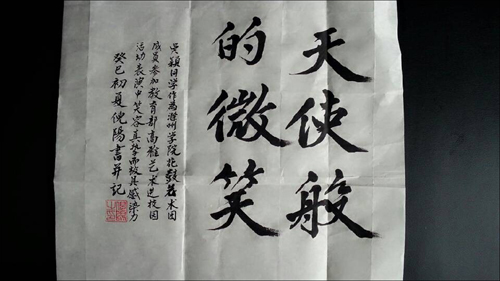 天使般
的微笑
吴颖同学作为滁州学院花鼓艺术团
成员参加教育部高雅艺术进校园
活动表演中笑容真挚而极具感染力
癸巳初夏倪阳书并记